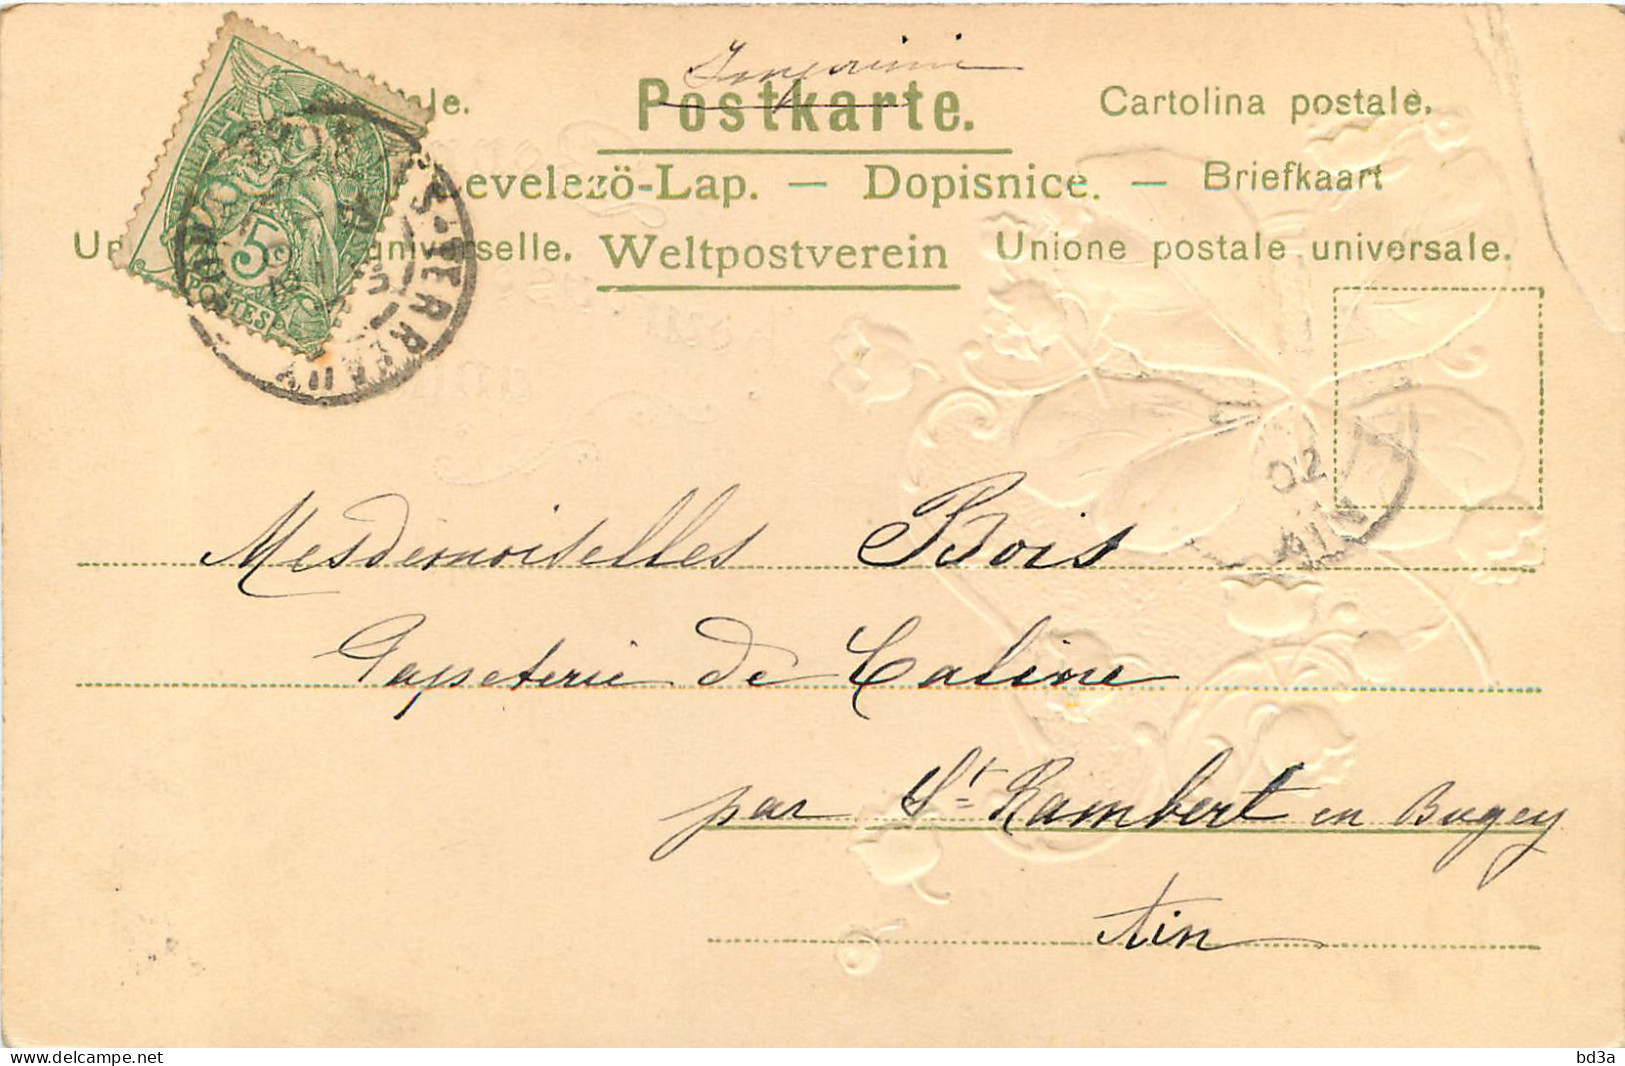 Imprimé
ale. Postkarte. Cartolina postale.
Levelezö-Lap. — Dopisnice. — Briefkaart
Un universelle. Weltpostverein Unione postale universale.
5c
POSTES
TERREAUX
02
AIN
Mesdemoiselles Bois
Papeterie de Caline
par St Rambert en Bugey
Ain
delcampe.net
bd3a